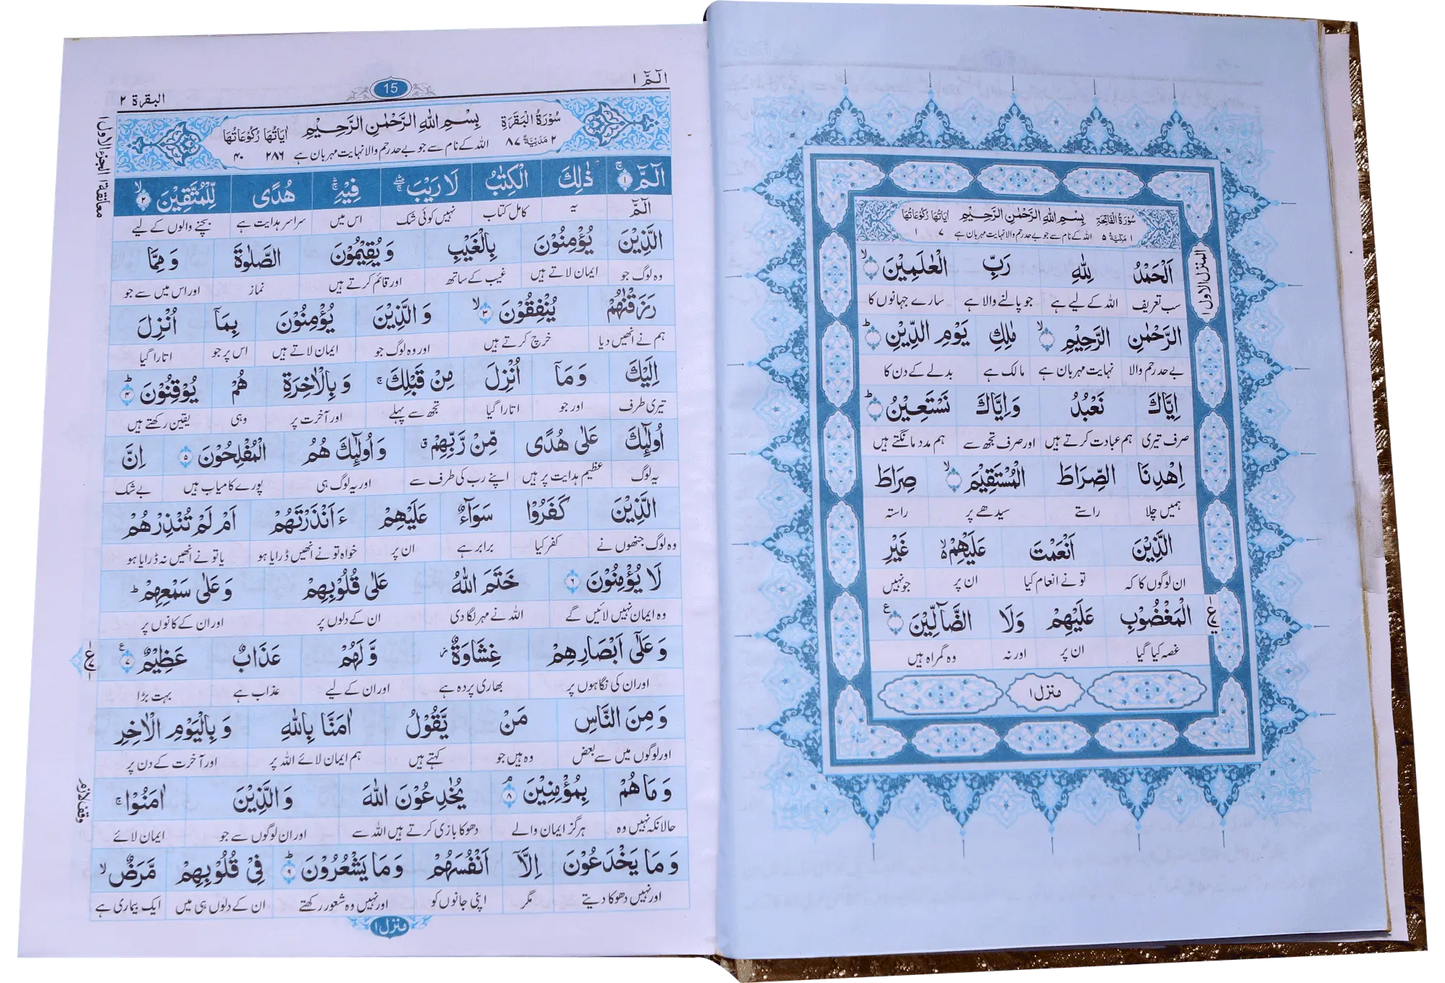 المنزل الاول
سُوْرَةُ الْفَاتِحَةِ بِسْمِ اللهِ الرَّحْمٰنِ الرَّحِيْمِ اٰيَاتُهَا رُكُوْعَاتُهَا
١ مَكِّيَّةٌ ٥ اللہ کے نام سے جو بے حد رحم والا نہایت مہربان ہے ٧ ١
اَلْحَمْدُ لِلّٰهِ رَبِّ الْعٰلَمِيْنَ
سب تعریف اللہ کے لیے ہے جو پالنے والا ہے سارے جہانوں کا
الرَّحْمٰنِ الرَّحِيْمِ مٰلِكِ يَوْمِ الدِّيْنِ
بے حد رحم والا نہایت مہربان ہے مالک ہے بدلے کے دن کا
اِيَّاكَ نَعْبُدُ وَاِيَّاكَ نَسْتَعِيْنُ
صرف تیری ہم عبادت کرتے ہیں اور صرف تجھ سے ہم مدد مانگتے ہیں
اِهْدِنَا الصِّرَاطَ الْمُسْتَقِيْمَ صِرَاطَ
ہمیں چلا راستے سیدھے پر راستہ
الَّذِيْنَ اَنْعَمْتَ عَلَيْهِمْ غَيْرِ
ان لوگوں کا کہ تو نے انعام کیا ان پر جو نہیں
الْمَغْضُوْبِ عَلَيْهِمْ وَلَا الضَّآلِّيْنَ
غصہ کیا گیا ان پر اور نہ وہ گمراہ ہیں
منزل ۱
الٓمّٓ ١ 15 البقرة ٢
سُوْرَةُ الْبَقَرَةِ بِسْمِ اللهِ الرَّحْمٰنِ الرَّحِيْمِ اٰيَاتُهَا رُكُوْعَاتُهَا
٢ مَدَنِيَّةٌ ٨٧ اللہ کے نام سے جو بے حد رحم والا نہایت مہربان ہے ٢٨٦ ٤٠
الٓمّٓ ١ ذٰلِكَ الْكِتٰبُ لَا رَيْبَ فِيْهِ هُدًى لِّلْمُتَّقِيْنَ ٢
الٓمّٓ یہ کامل کتاب نہیں کوئی شک اس میں سراسر ہدایت ہے بچنے والوں کے لیے
الَّذِيْنَ يُؤْمِنُوْنَ بِالْغَيْبِ وَيُقِيْمُوْنَ الصَّلٰوةَ وَمِمَّا
وہ لوگ جو ایمان لاتے ہیں غیب کے ساتھ اور قائم کرتے ہیں نماز اور اس میں سے جو
رَزَقْنٰهُمْ يُنْفِقُوْنَ ٣ وَالَّذِيْنَ يُؤْمِنُوْنَ بِمَآ اُنْزِلَ
ہم نے انھیں دیا خرچ کرتے ہیں اور وہ لوگ جو ایمان لاتے ہیں اس پر جو اتارا گیا
اِلَيْكَ وَمَآ اُنْزِلَ مِنْ قَبْلِكَ وَبِالْاٰخِرَةِ هُمْ يُوْقِنُوْنَ ٤
تیری طرف اور جو اتارا گیا تجھ سے پہلے اور آخرت پر وہی یقین رکھتے ہیں
اُولٰٓئِكَ عَلٰى هُدًى مِّنْ رَّبِّهِمْ وَاُولٰٓئِكَ هُمُ الْمُفْلِحُوْنَ ٥ اِنَّ
یہ لوگ عظیم ہدایت پر ہیں اپنے رب کی طرف سے اور یہ لوگ ہی پورے کامیاب ہیں بے شک
الَّذِيْنَ كَفَرُوْا سَوَآءٌ عَلَيْهِمْ ءَاَنْذَرْتَهُمْ اَمْ لَمْ تُنْذِرْهُمْ
وہ لوگ جنھوں نے کفر کیا برابر ہے ان پر خواہ تو نے انھیں ڈرایا ہو یا تو نے انھیں نہ ڈرایا ہو
لَا يُؤْمِنُوْنَ ٦ خَتَمَ اللهُ عَلٰى قُلُوْبِهِمْ وَعَلٰى سَمْعِهِمْ
وہ ایمان نہیں لائیں گے اللہ نے مہر لگا دی ان کے دلوں پر اور ان کے کانوں پر
وَعَلٰٓى اَبْصَارِهِمْ غِشَاوَةٌ وَّلَهُمْ عَذَابٌ عَظِيْمٌ ٧
اور ان کی نگاہوں پر بھاری پردہ ہے اور ان کے لیے عذاب ہے بہت بڑا
وَمِنَ النَّاسِ مَنْ يَّقُوْلُ اٰمَنَّا بِاللهِ وَبِالْيَوْمِ الْاٰخِرِ
اور لوگوں میں سے بعض وہ ہیں جو کہتے ہیں ہم ایمان لائے اللہ پر اور آخرت کے دن پر
وَمَا هُمْ بِمُؤْمِنِيْنَ ٨ يُخٰدِعُوْنَ اللهَ وَالَّذِيْنَ اٰمَنُوْا
حالانکہ نہیں وہ ہرگز ایمان والے دھوکا بازی کرتے ہیں اللہ سے اور ان لوگوں سے جو ایمان لائے
وَمَا يَخْدَعُوْنَ اِلَّآ اَنْفُسَهُمْ وَمَا يَشْعُرُوْنَ ٩ فِيْ قُلُوْبِهِمْ مَّرَضٌ
اور نہیں دھوکا دیتے مگر اپنی جانوں کو اور نہیں وہ شعور رکھتے ان کے دلوں ہی میں ایک بیماری ہے
منزل ۱
معانقة ١ الجزء الاول ١
وقف لازم